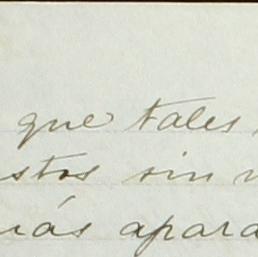 que tales
stos sin
más apara